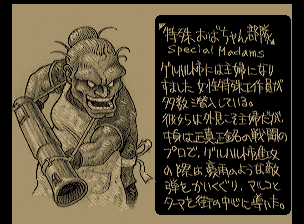 特殊おばちゃん部隊
Special Madams
ゲルハルト市には主婦になり
すました女性特殊工作員が
多数潜入している。
彼らは外見こそ主婦だが、
中身は正真正銘の戦闘の
プロで、ゲルハルト市進攻
の際は豪雨のような敵
弾をかいくぐり、マルコと
ターマを街の中心に導いた。